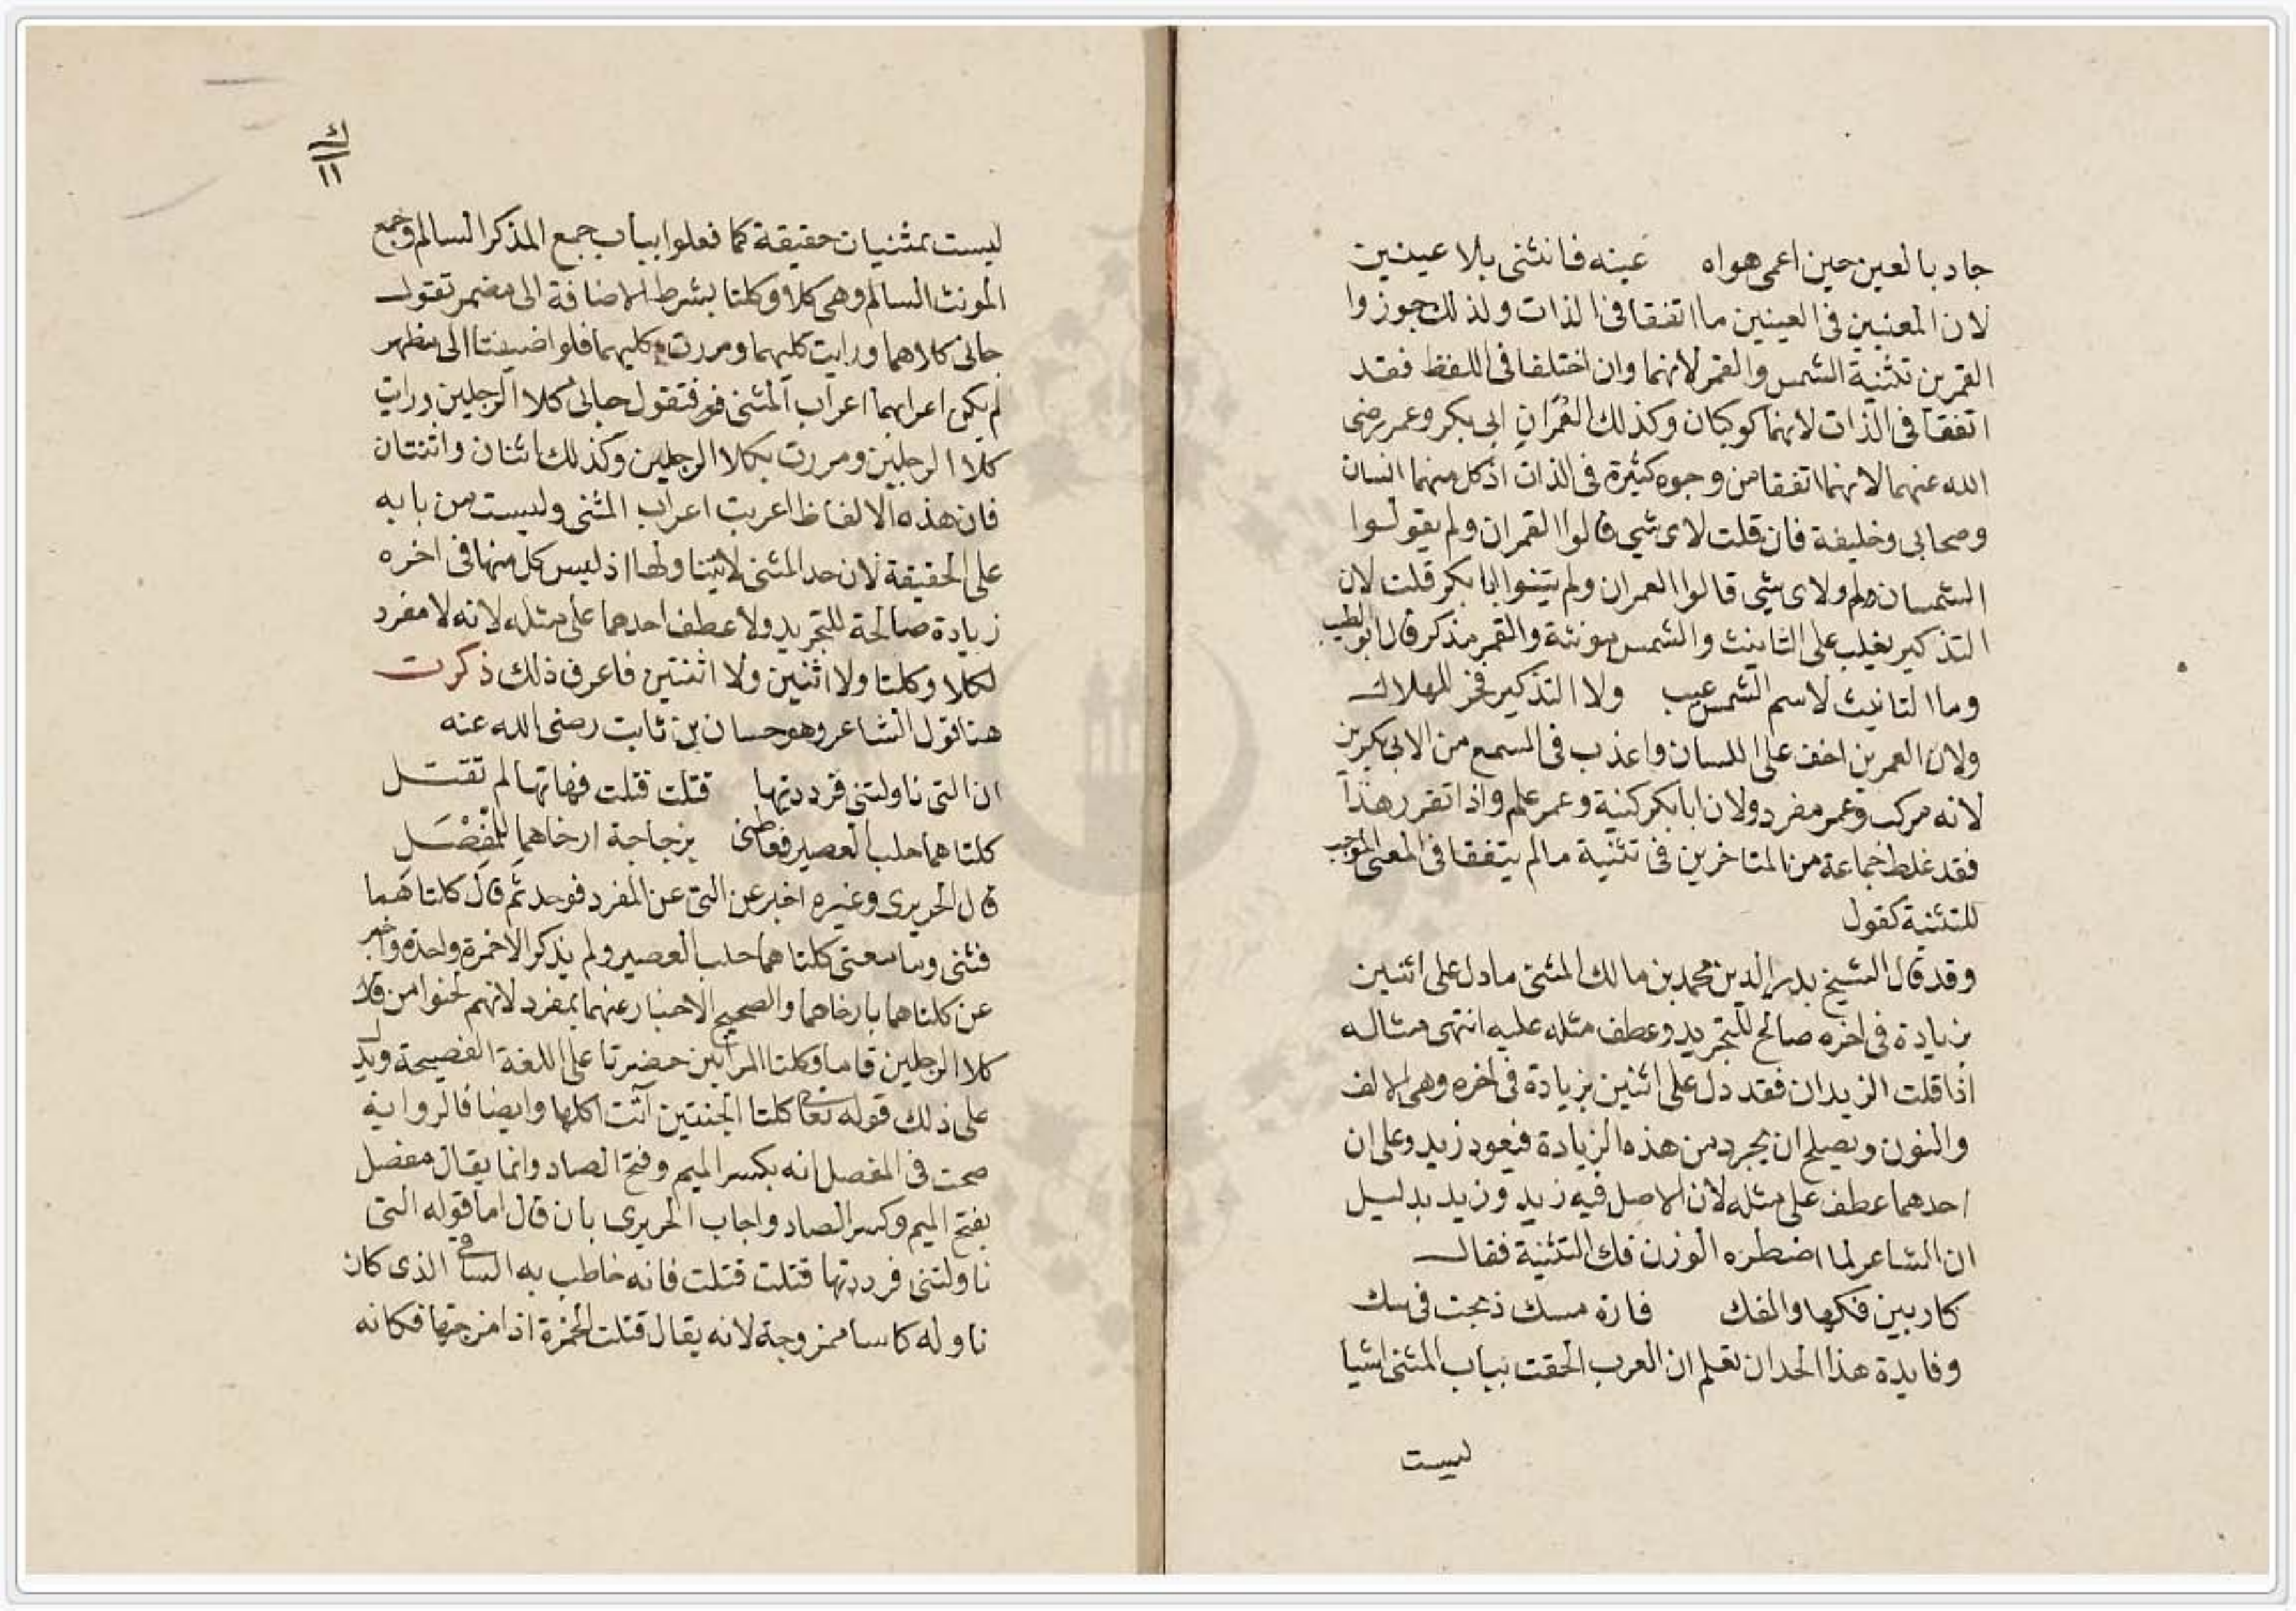 جاد بالعين حين اعمى هواه عينه فانثنى بلا عينين
لان المعنيين فى العينين ما اتفقا فى الذات ولذلك جوزوا
القمرين تثنية الشمس والقمر لانهما وان اختلفا فى اللفظ فقد
اتفقا فى الذات لانهما كوكبان وكذلك العُمَران ابى بكر وعمر رضى
الله عنهما لانهما اتفقا من وجوه كثيرة فى الذات اذ كل منهما انسان
وصحابى وخليفة فان قلت لاى شي قالوا القمران ولم يقولوا
الشمسان ولم ولاى شي قالوا العمران ولم يثنوا ابا بكر قلت لان
التذكير يغلب على التانيث والشمس مونثة والقمر مذكر قال ابو الطيب
وما التانيث لاسم الشمس عيب ولا التذكير فخر للهلال
ولان العمرين اخف على اللسان واعذب فى السمع من الابى بكرين
لانه مركب وعمر مفرد ولان ابا بكر كنية وعمر علم واذا تقرر هذا
فقد غلط جماعة من المتاخرين فى تثنية مالم يتفقا فى المعنى الموجب
للتثنية كقول
وقد قال الشيخ بدر الدين محمد بن مالك المثنى ما دل على اثنين
بزيادة فى اخره صالح للتجريد وعطف مثله عليه انتهى مثاله
اذا قلت الزيدان فقد دل على اثنين بزيادة فى اخره وهى الالف
والنون ويصلح ان يجرد من هذه الزيادة فيعود زيد وعلى ان
احدهما عطف على مثله لان الاصل فيه زيد وزيد بدليل
ان الشاعر لما اضطره الوزن فك التثنية فقال
كان بين فكها والفك فارة مسك ذبحت فى سك
وفايدة هذا الحد ان تعلم ان العرب الحقت بباب المثنى اشيا
ليست
ك
١١
ليست بمثنيات حقيقة كما فعلوا بباب جمع المذكر السالم وجمع
المونث السالم وهى كلا وكلتا بشرط الاضافة الى مضمر تقول
جانى كلاهما ورايت كليهما ومررت بكليهما فلو اضيفتا الى مظهر
لم يكن اعرابهما اعراب المثنى فتقول جانى كلا الرجلين ورايت
كلا الرجلين ومررت بكلا الرجلين وكذلك اثنان واثنتان
فان هذه الالفاظ اعربت اعراب المثنى وليست من بابه
على الحقيقة لان حد المثنى لا يتناولها اذ ليس كل منها فى اخره
زيادة صالحة للتجريد ولا عطف احدهما على مثله لانه لا مفرد
لكلا وكلتا ولا اثنين ولا اثنتين فاعرف ذلك ذكرت
هنا قول الشاعر وهو حسان بن ثابت رضى الله عنه
ان التى ناولتنى فرددتها قتلت قتلت فهاتها لم تقتل
كلتاهما حلب العصير فعاطنى بزجاجة ارخاهما للمِفْصَلِ
قال الحريرى وغيره اخبر عن التى عن المفرد فوحد ثم قال كلتاهما
فثنى وما معنى كلتاهما حلب العصير ولم يذكر الا خمرة واحدة واخبر
عن كلتاهما بارخاهما والصحيح الاخبار عنهما بمفرد لانهم لحنوا من قال
كلا الرجلين قاما وكلتا المراتين حضرتا على اللغة الفصيحة ويدل
على ذلك قوله تعالى كلتا الجنتين آتت اكلها وايضا فالرواية
صحت فى المفصل انه بكسر الميم وفتح الصاد وانما يقال مفصل
بفتح الميم وكسر الصاد واجاب الحريرى بان قال اما قوله التى
ناولتنى فرددتها قتلت قتلت فانه خاطب به الساقى الذى كان
ناوله كاسا ممزوجة لانه يقال قتلت الخمرة اذا مزجتها فكانه